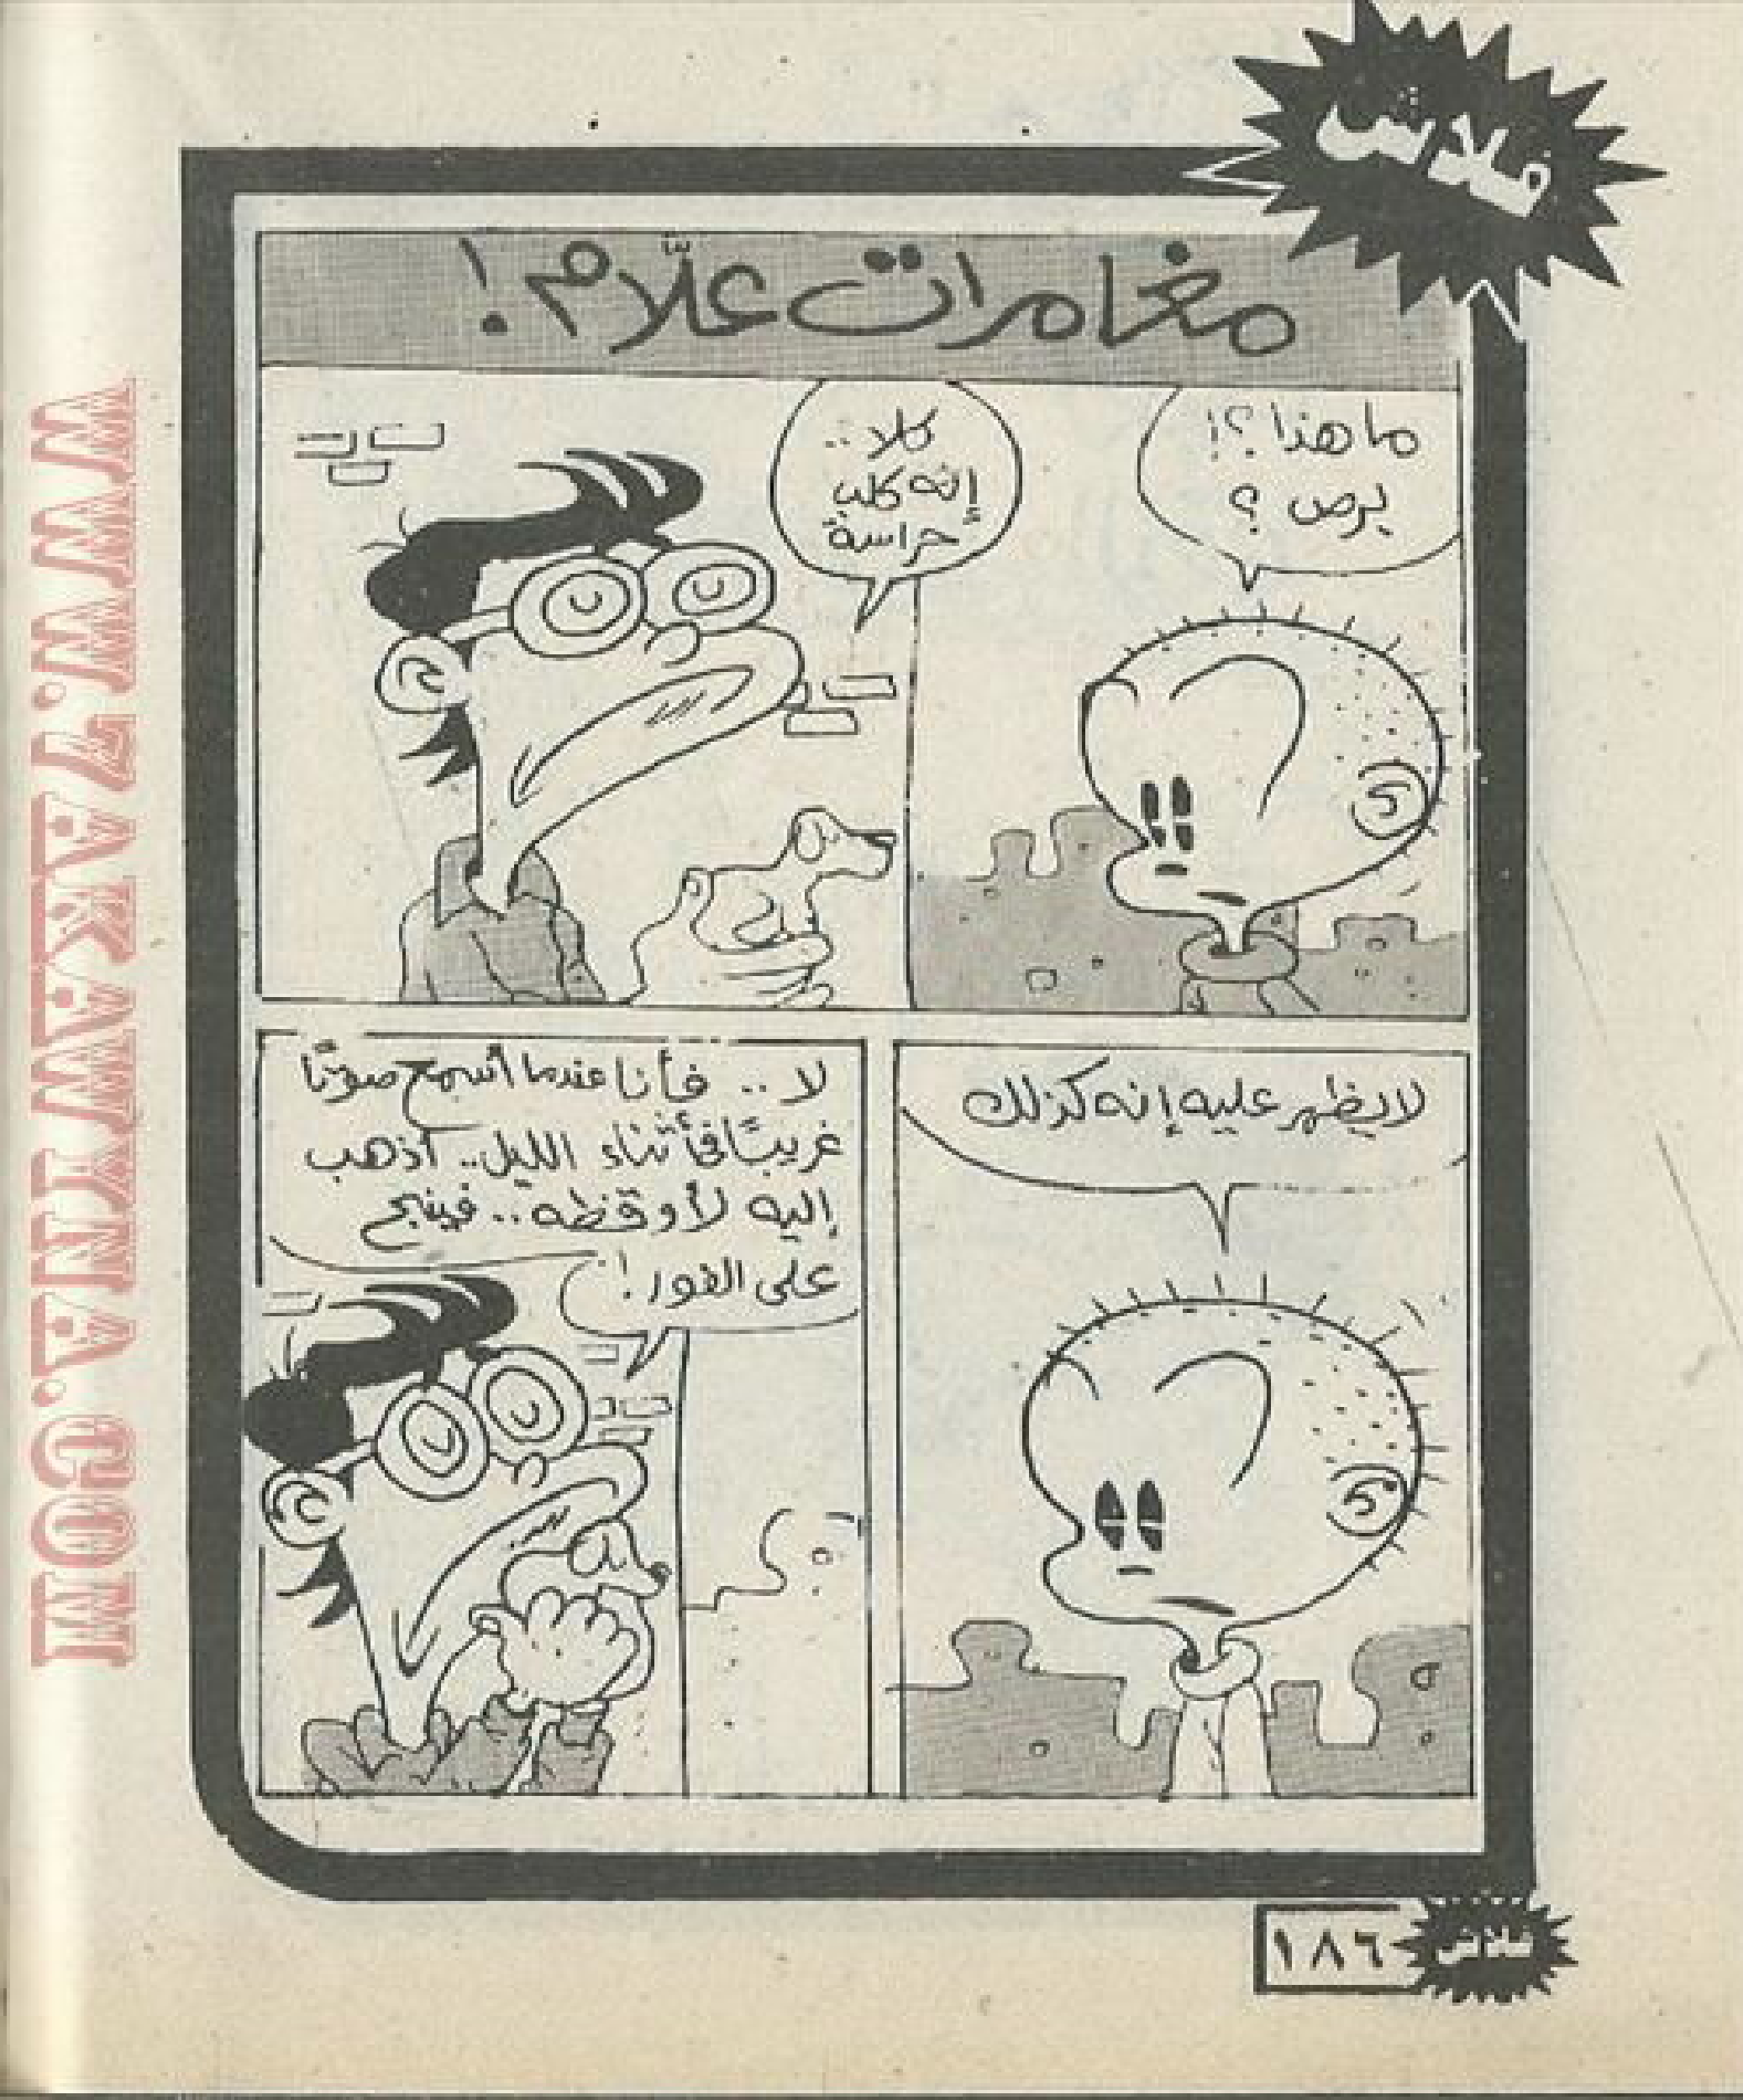 فلاش
مغامرات علّام!
ما هذا؟!
برص؟
كلا..
إنه كلب
حراسة
لا يظهر عليه إنه كذلك
لا.. فأنا عندما أسمع صوتًا
غريبًا في أثناء الليل.. أذهب
إليه لأوقظه.. فينبح
على الفور!
١٨٦
فلاش
WWW.7AKAWITNA.COM